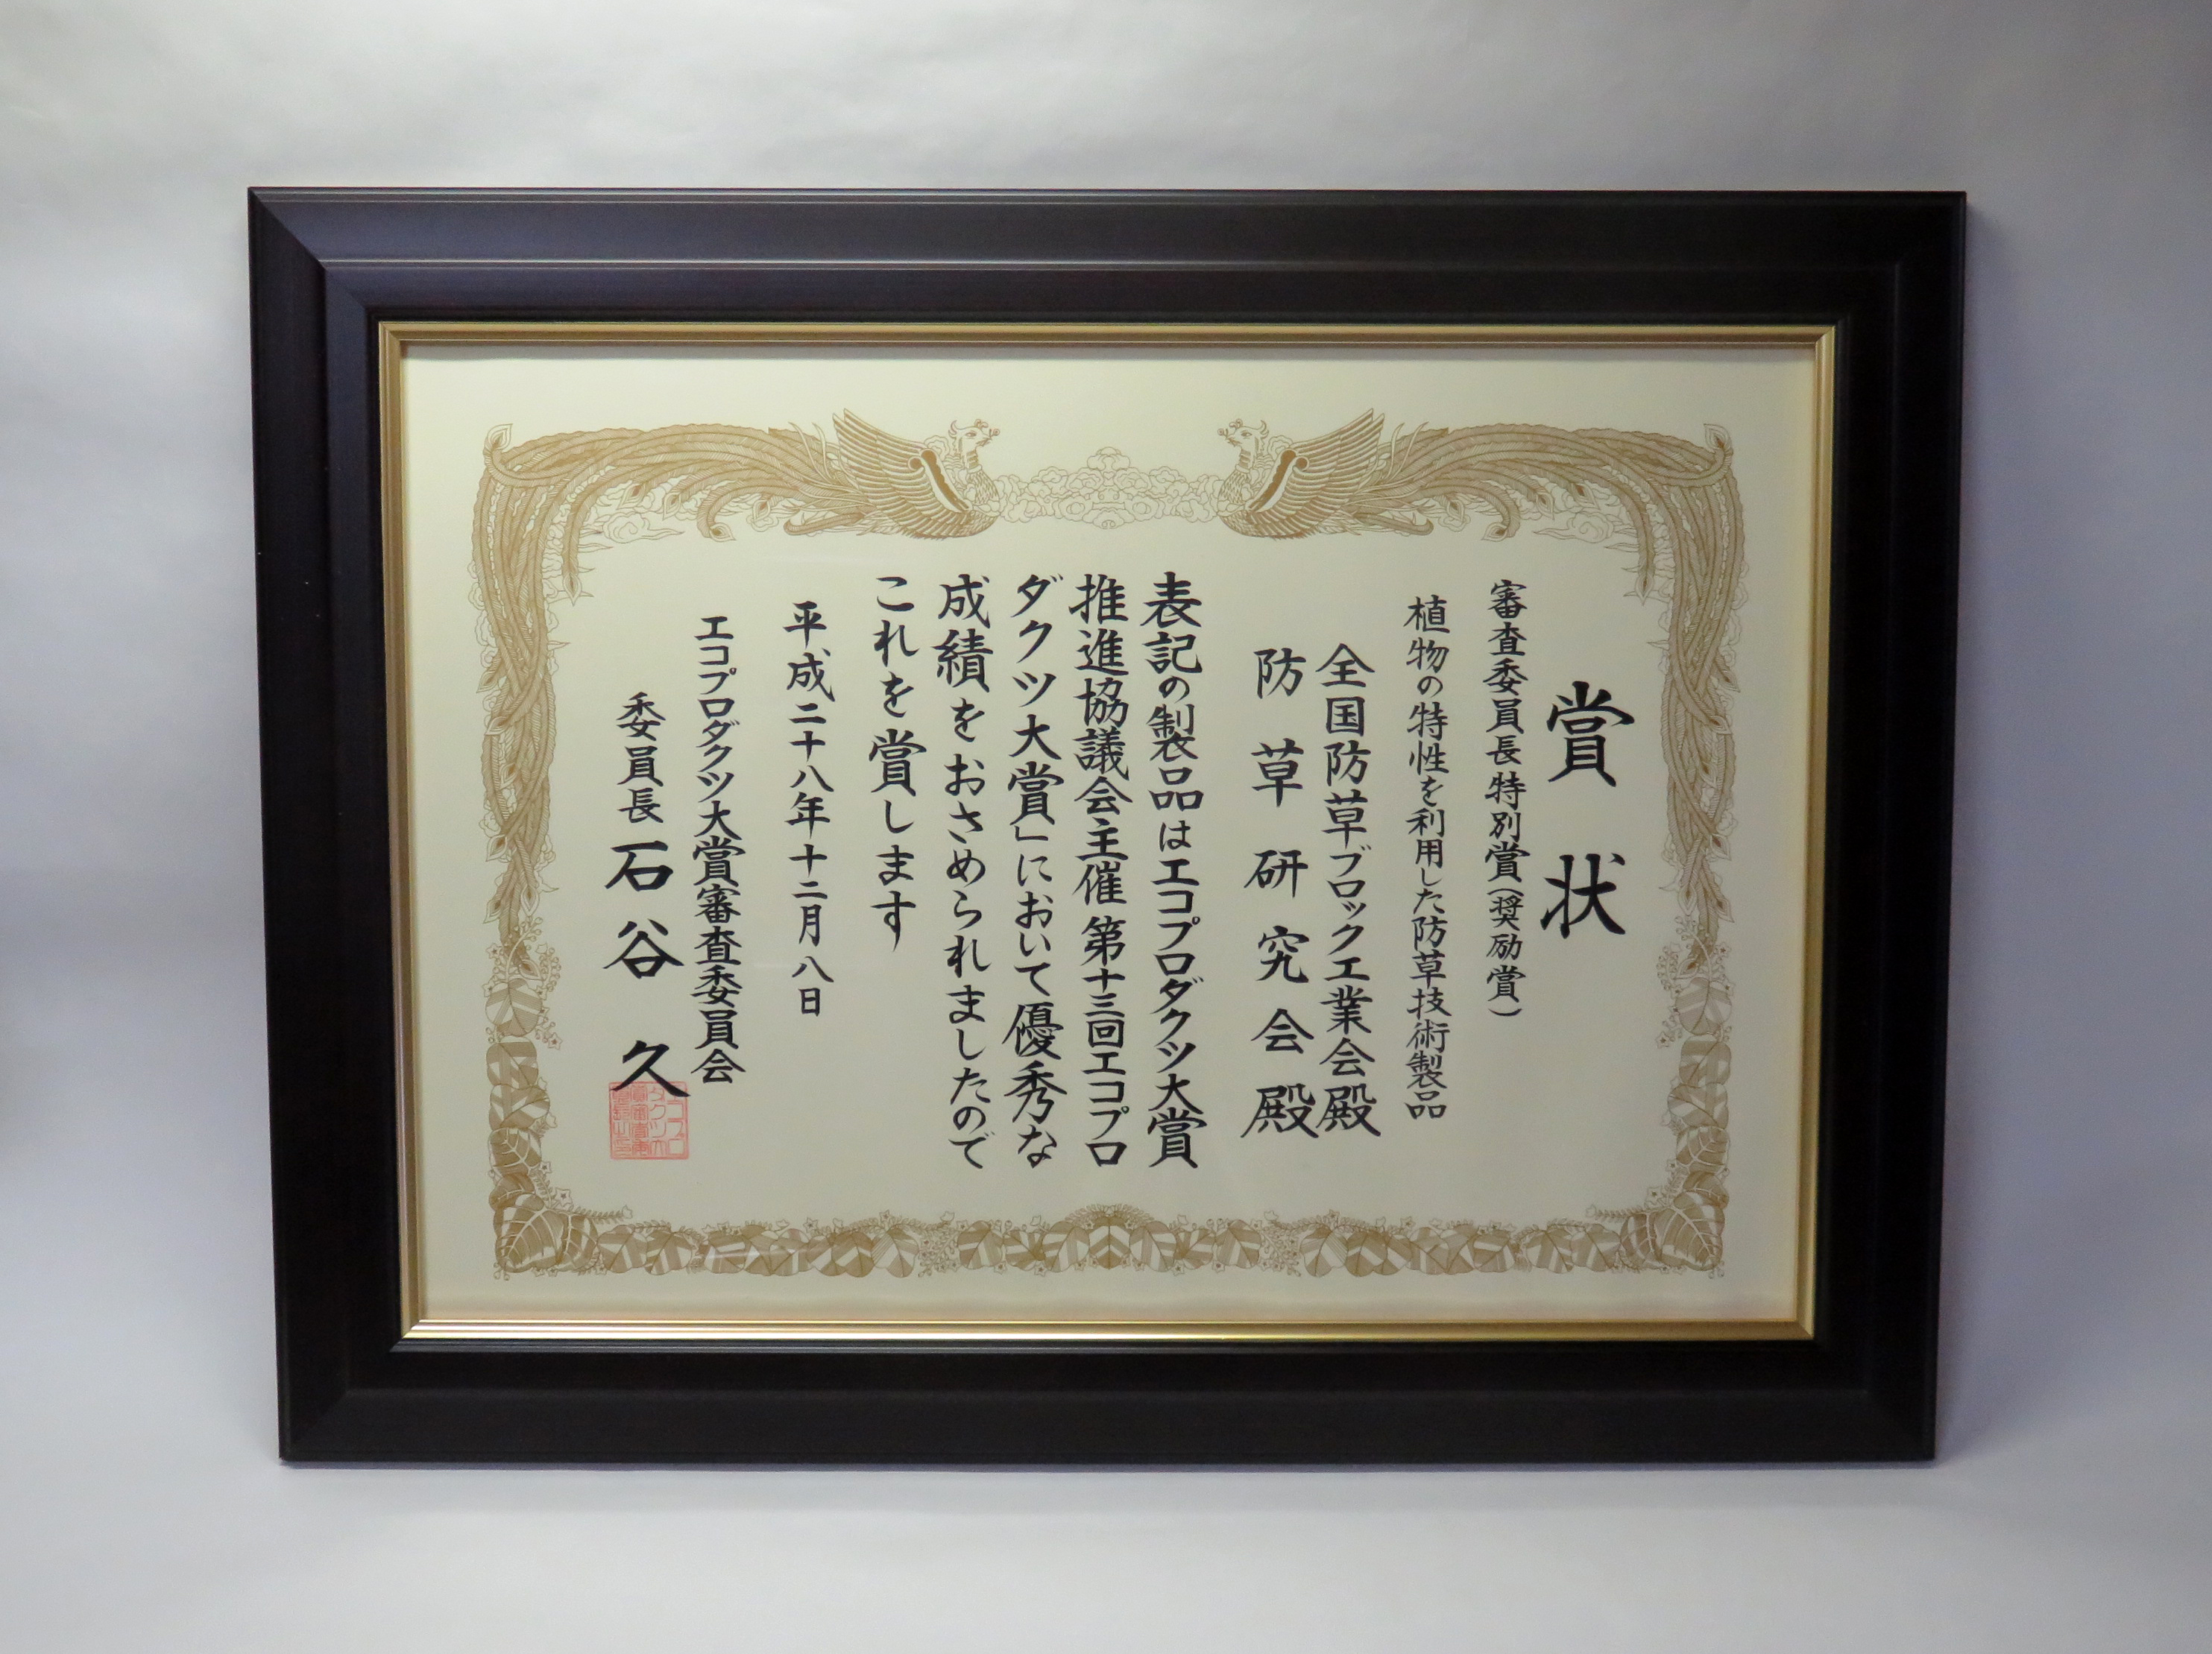 賞状
審査委員長特別賞(奨励賞)
植物の特性を利用した防草技術製品
全国防草ブロック工業会殿
防草研究会殿
表記の製品はエコプロダクツ大賞
推進協議会主催 第十三回エコプロ
ダクツ大賞」において優秀な
成績をおさめられましたので
これを賞します
平成二十八年十二月八日
エコプロダクツ大賞審査委員会
委員長 石谷 久